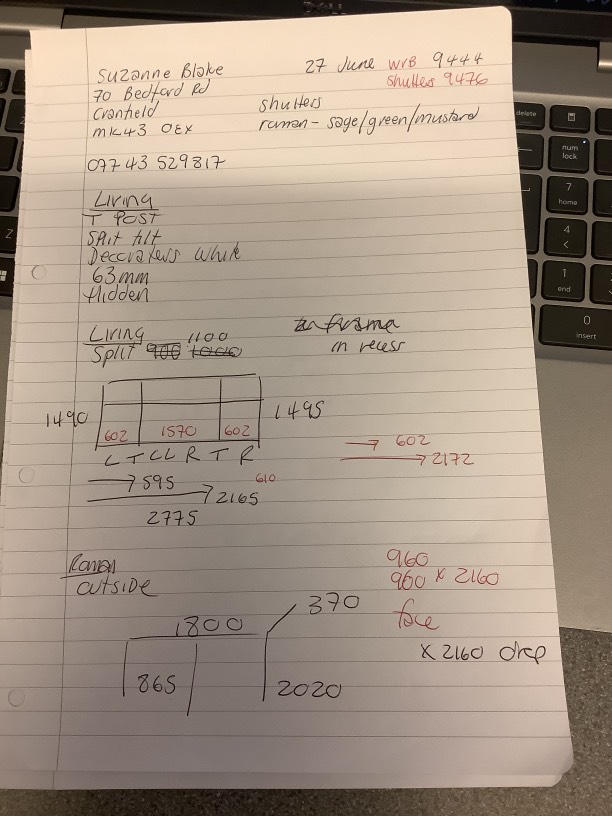 Suzanne Blake 27 June WrB 9444
70 Bedford Rd Shutters 9476
Cranfield shutters
MK43 0EX roman - sage/green/mustard
07743 529817
Living
T POST
Split tilt
Decorators White
63mm
Hidden
Living 1100 frame
Split 900 1000 in recess
1490 1495
602 1570 602
L T C L L R T R
602
2172
595 610
2165
2775
Roman
outside
960
960 x 2160
face
x 2160 drop
1800 370
865 2020
DELL
delete
num lock
7 home
4
1 end
0 insert
Z